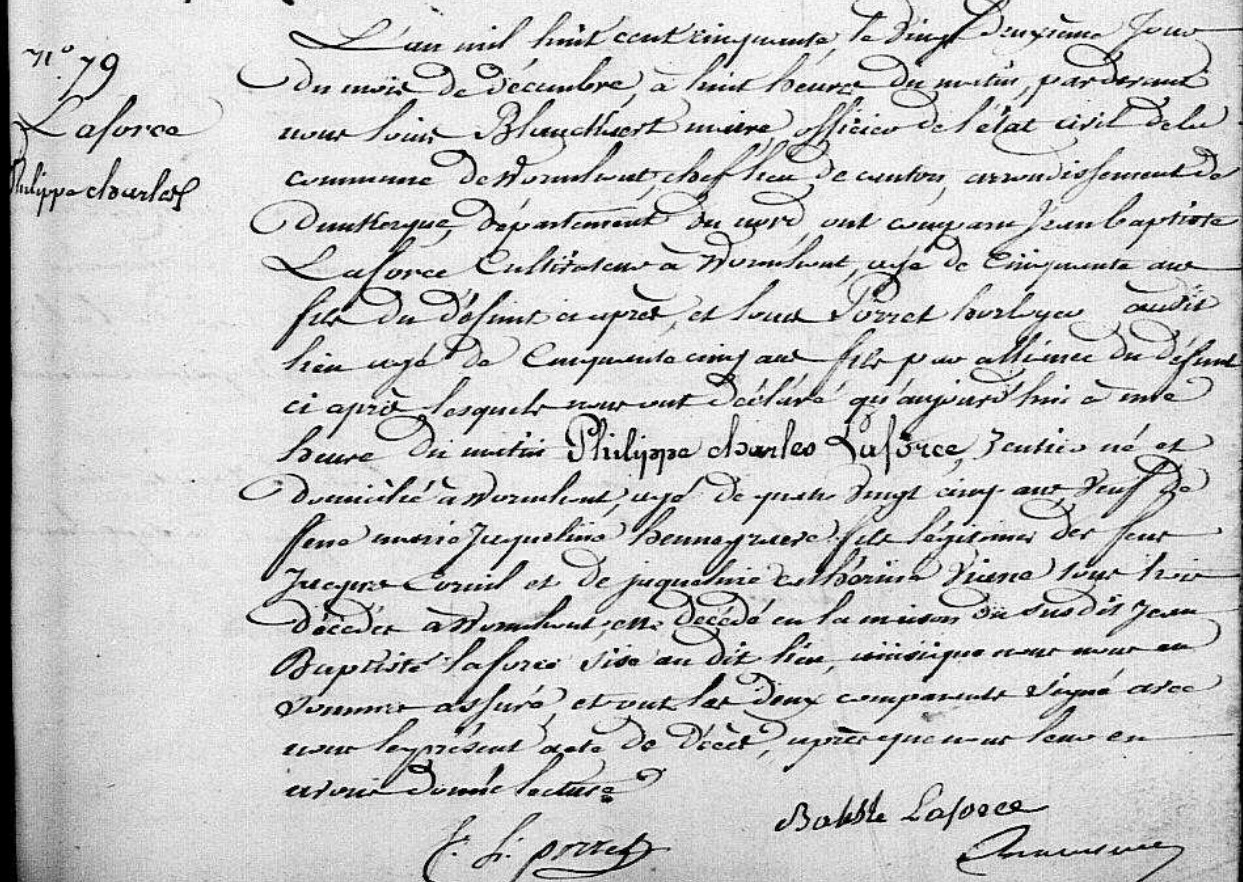 N°. 79
Laforce
Philippe charles
L'an mil huit cent cinquante, le vingt deuxième jour
du mois de décembre, à huit heures du matin, pardevant
nous louis Blanckaert maire officier de l'état civil de la
commune de Wormhout, chef lieu de canton, arrondissement de
Dunkerque, département du nord, ont comparu Jean baptiste
Laforce Cultivateur à Wormhout, agé de Cinquante ans
fils du défunt ci après, et louis Porret horloger audit
lieu agé de Cinquante cinq ans fils par alliance du défunt
ci après lesquels nous ont déclaré qu'aujourd'hui à une
heure du matin Philippe charles Laforce, rentier né et
domicilié à Wormhout, agé de quatre vingt cinq ans, veuf de
feue marie Jaqueline fils légitime des feux
Jacques Cornil et de jaqueline catherine tous trois
décédés à Wormhout, est décédé en la maison du susdit Jean
Baptiste laforce sise au dit lieu, ainsi que nous nous en
sommes assuré et ont les deux comparants signé avec
nous le présent acte de décès, après que nous leur en
avons donné lecture
Batiste Laforce